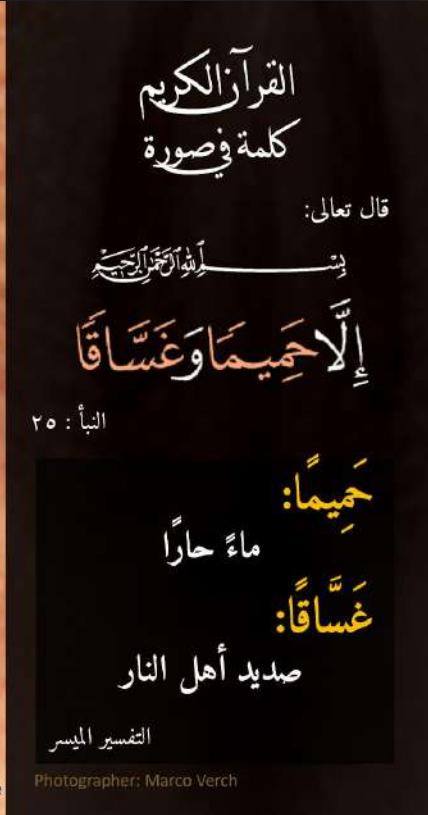 القرآن الكريم
كلمة في صورة
قال تعالى:
بِسْمِ ٱللَّهِ ٱلرَّحْمَٰنِ ٱلرَّحِيمِ
إِلَّا حَمِيمًا وَغَسَّاقًا
النبأ : ٢٥
حَمِيمًا:
ماءً حارًا
غَسَّاقًا:
صديد أهل النار
التفسير الميسر
Photographer: Marco Verch